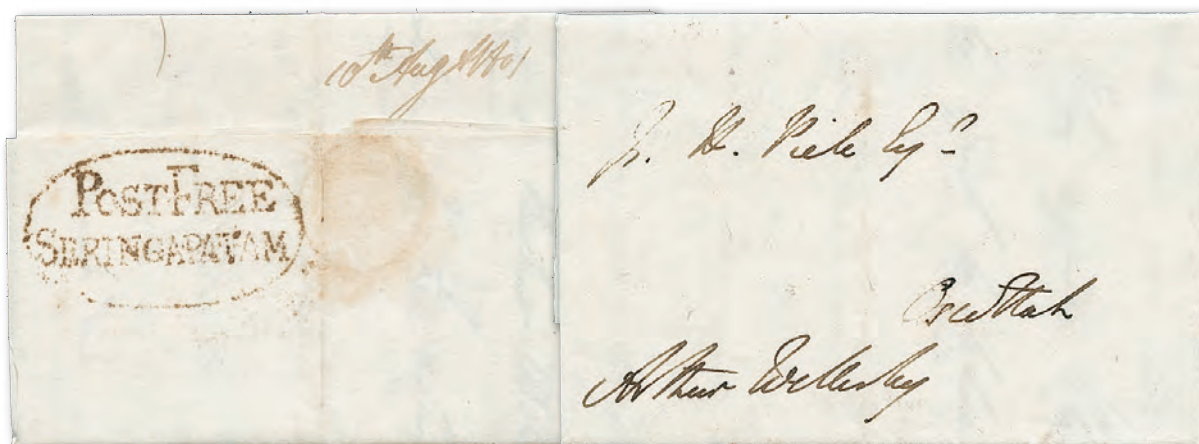 10th Aug 1801
POST FREE
SERINGAPATAM
J. H. Piele Esqr
Arthur Wellesley